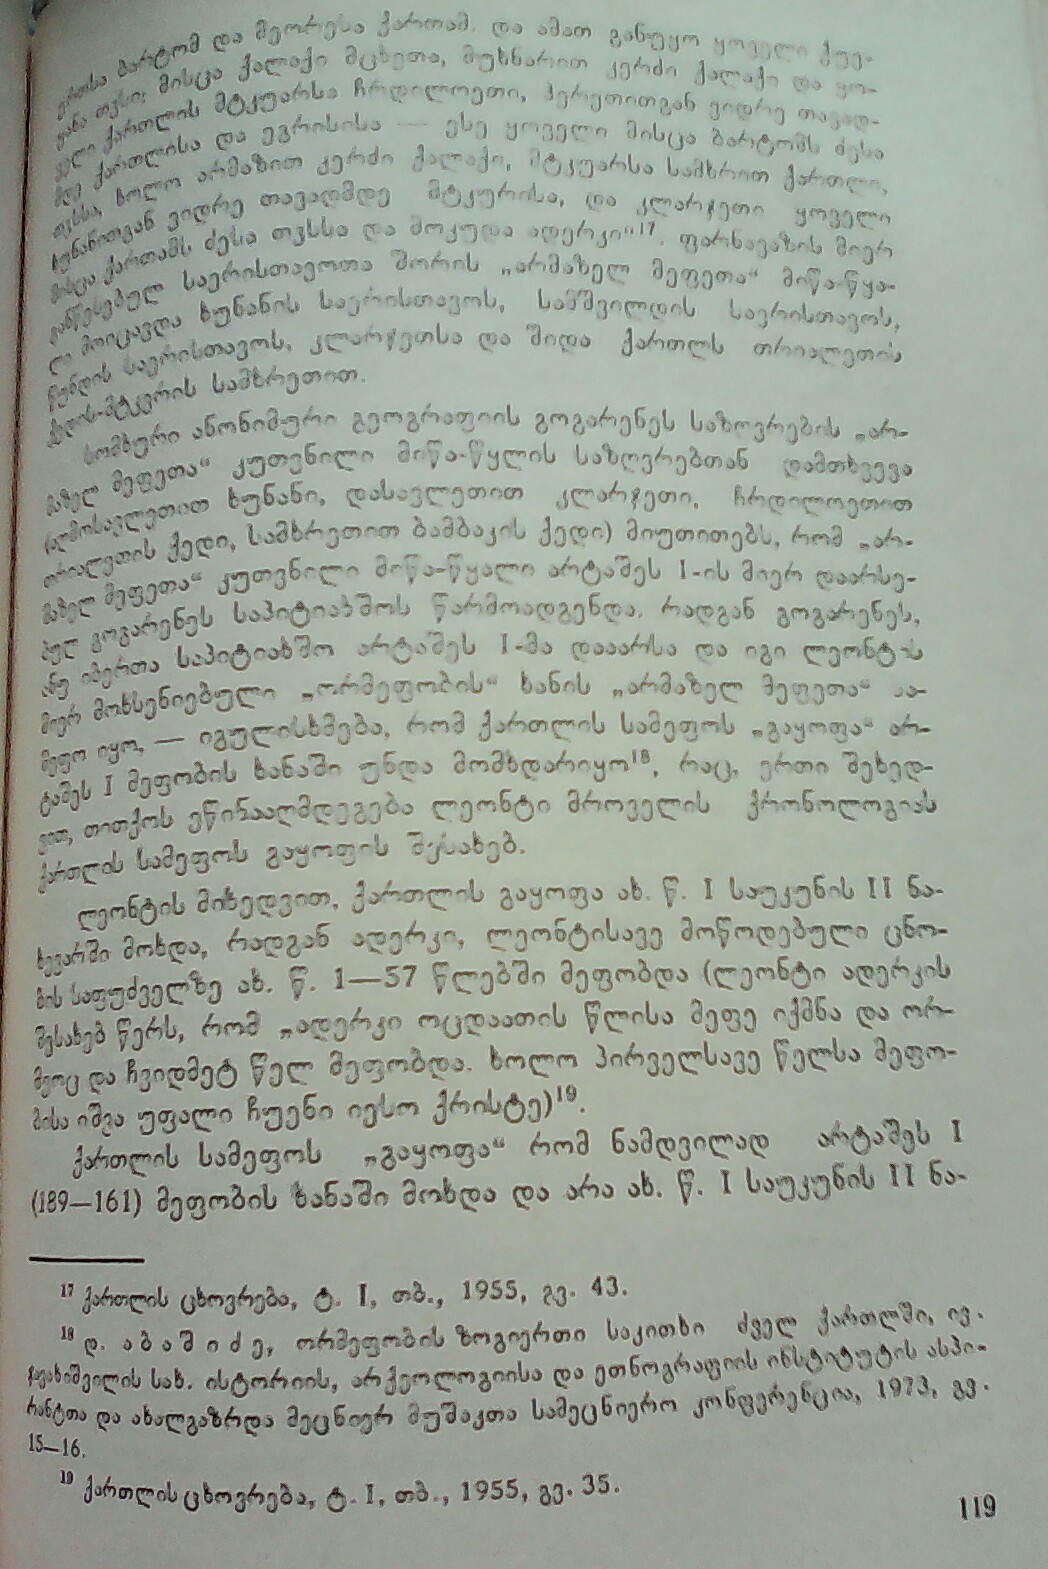 ერთსა ბარტომ და მეორესა ქართამ. და ამათ განუყო ყოველი ქუე-
ყანა თვსი: მისცა ქალაქი მცხეთა, მუხნარით კერძი ქალაქი და ყო-
ველი ქართლის მტკუარსა ჩრდილოეთი, ჰერეთითგან ვიდრე თავად-
მდე ქართლისა და ეგრისისა — ესე ყოველი მისცა ბარტომს ძესა
თვსსა, ხოლო არმაზით კერძი ქალაქი, მტკუარსა სამხრით ქართლი,
ხუნანითგან ვიდრე თავადმდე მტკურისა, და კლარჯეთი ყოველი
მისცა ქართამს ძესა თვსსა და მოკუდა ადერკი“17. ფარნავაზის მიერ
დაწესებულ საერისთავოთა შორის „არმაზელ მეფეთა“ მიწა-წყა-
ლი მოიცავდა ხუნანის საერისთავოს, სამშვილდის საერისთავოს,
წუნდის საერისთავოს, კლარჯეთსა და შიდა ქართლს თრიალეთის
ქედის-მტკვრის სამხრეთით.
სომხური ანონიმური გეოგრაფიის გოგარენეს საზღვრების „არ-
მაზელ მეფეთა“ კუთვნილი მიწა-წყლის საზღვრებთან დამთხვევა
(აღმოსავლეთით ხუნანი, დასავლეთით კლარჯეთი, ჩრდილოეთით
თრიალეთის ქედი, სამხრეთით ბამბაკის ქედი) მიუთითებს, რომ „არ-
მაზელ მეფეთა“ კუთვნილი მიწა-წყალი არტაშეს I-ის მიერ დაარსე-
ბულ გოგარენეს საპიტიახშოს წარმოადგენდა. რადგან გოგარენეს,
ანუ იბერთა საპიტიახშო არტაშეს I-მა დააარსა და იგი ლეონტის
მიერ მოხსენიებული „ორმეფობის“ ხანის „არმაზელ მეფეთა“ სა-
მეფო იყო, — იგულისხმება, რომ ქართლის სამეფოს „გაყოფა“ არ-
ტაშეს I მეფობის ხანაში უნდა მომხდარიყო18, რაც, ერთი შეხედ-
ვით, თითქოს ეწინააღმდეგება ლეონტი მროველის ქრონოლოგიას
ქართლის სამეფოს გაყოფის შესახებ.
ლეონტის მიხედვით, ქართლის გაყოფა ახ. წ. I საუკუნის II ნა-
ხევარში მოხდა, რადგან ადერკი, ლეონტისავე მოწოდებული ცნო-
ბის საფუძველზე ახ. წ. 1—57 წლებში მეფობდა (ლეონტი ადერკის
შესახებ წერს, რომ „ადერკი ოცდაათის წლისა მეფე იქმნა და ორ-
მეოც და ჩვიდმეტ წელ მეფობდა. ხოლო პირველსავე წელსა მეფო-
ბისა იშვა უფალი ჩუენი იესო ქრისტე)19.
ქართლის სამეფოს „გაყოფა“ რომ ნამდვილად არტაშეს I
(189—161) მეფობის ხანაში მოხდა და არა ახ. წ. I საუკუნის II ნა-
17 ქართლის ცხოვრება, ტ. I, თბ., 1955, გვ. 43.
18 დ. აბაშიძე, ორმეფობის ზოგიერთი საკითხი ძველ ქართლში, ივ.
ჯავახიშვილის სახ. ისტორიის, არქეოლოგიისა და ეთნოგრაფიის ინსტიტუტის ასპი-
რანტთა და ახალგაზრდა მეცნიერ მუშაკთა სამეცნიერო კონფერენცია, 1973, გვ.
15—16.
19 ქართლის ცხოვრება, ტ. I, თბ., 1955, გვ. 35.
119